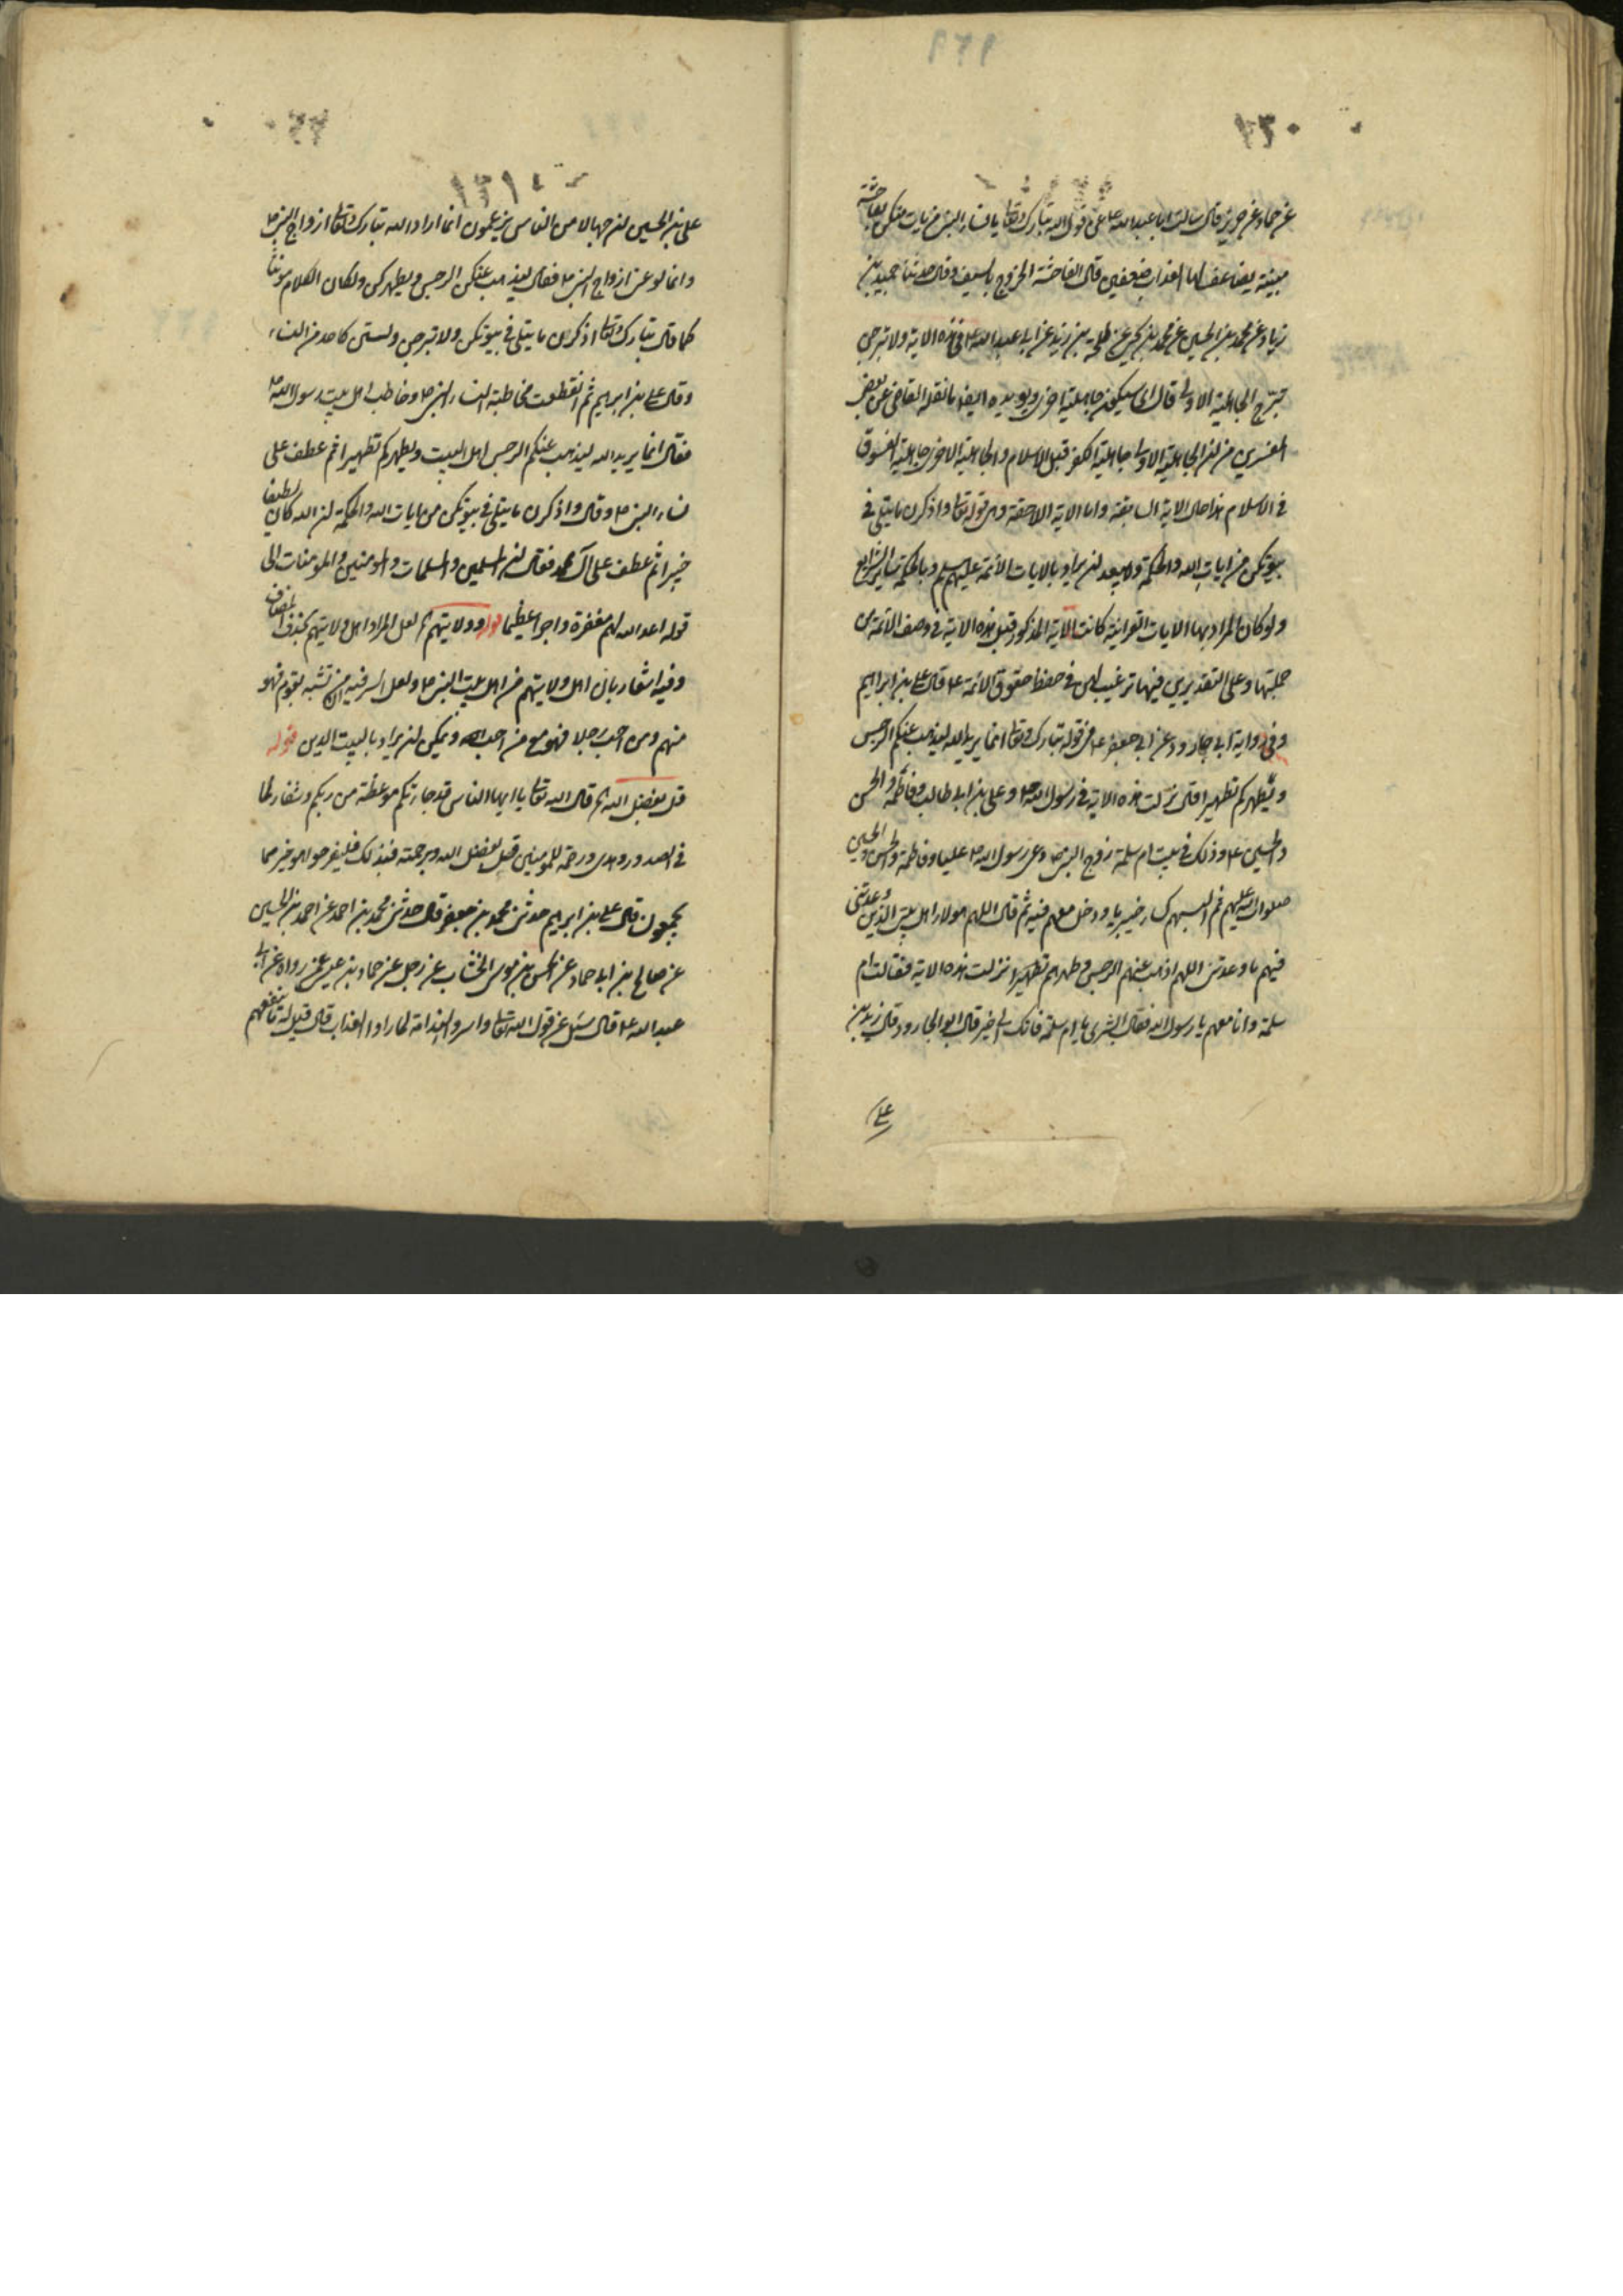 ١٣٠
عن حماد عن حريز قال سالت ابا عبدالله ع عن قول الله تبارك وتعا يا نساء النبى من يات منكن بفاحشة
مبينة يضاعف لها العذاب ضعفين قال الفاحشة الخروج بالسيف وقال حدثنا حميد بن
زياد عن محمد بن الحسين عن محمد بن يحيى عن طلحة بن زيد عن ابى عبدالله ع فى هذه الاية ولا تبرجن
تبرج الجاهلية الاولى قال اى سيكون جاهلية اخرى ويويده ايضا ما نقله القاضى عن بعض
المفسرين من ان الجاهلية الاولى جاهلية الكفر قبل الاسلام والجاهلية الاخرى جاهلية الفسوق
فى الاسلام هذا حال الاية السابقة واما الاية اللاحقة وهى قوله تعا واذكرن ما يتلى فى
بيوتكن من ايات الله والحكمة ولا يبعد ان يراد بالايات الائمة عليهم السلم وبالحكمة ساير الشرايع
ولو كان المراد بها الايات القرانية كانت الاية المذكورة قبل هذه الاية فى وصف الائمة من
جملتها وعلى التقديرين فيها ترغيب لهن فى حفظ حقوق الائمة ع قال على بن ابراهيم
وفى رواية ابى جارود عن ابى جعفر ع فى قوله تبارك وتعا انما يريد الله ليذهب عنكم الرجس
ويطهركم تطهيرا قال نزلت هذه الاية فى رسول الله ص وعلى بن ابى طالب وفاطمة والحسن
والحسين ع وذلك فى بيت ام سلمة زوج النبى ص دعى رسول الله ص عليا وفاطمة والحسن والحسين
صلوات الله عليهم ثم البسهم كساء خيبريا ودخل معهم فيه ثم قال اللهم هولاء اهل بيتى الذين وعدتنى
فيهم ما وعدتنى اللهم اذهب عنهم الرجس وطهرهم تطهيرا نزلت هذه الاية فقالت ام
سلمة وانا معهم يا رسول الله فقال ابشرى يا ام سلمة فانك الى خير قال ابو الجارود وقال زيد بن
على
١٣١
على بن الحسين ان جهالا من الناس يزعمون انما اراد الله تبارك وتعا ازواج النبى ص
وانما لو عنى ازواج النبى ص فقال ليذهب عنكن الرجس ويطهركن ولكان الكلام مونثا
كما قال تبارك وتعا اذكرن ما يتلى فى بيوتكن ولا تبرجن ولستن كاحد من النساء
وقال على بن ابراهيم ثم انقطعت مخاطبة نساء النبى ص وخاطب اهل بيت رسول الله ص
فقال انما يريد الله ليذهب عنكم الرجس اهل البيت ويطهركم تطهيرا ثم عطف على
نساء النبى ص وقال واذكرن ما يتلى فى بيوتكن من ايات الله والحكمة ان الله كان لطيفا
خبيرا ثم عطف على آل محمد فقال ان المسلمين والمسلمات والمومنين والمومنات الى
قوله اعد الله لهم مغفرة واجرا عظيما قوله وولايتهم لعل المراد اهل ولايتهم بحذف المضاف
وفيه اشعار بان اهل ولايتهم من اهل بيت النبى ص ولعل السر فيه ان من تشبه بقوم فهو
منهم ومن احب رجلا فهو مع من احب ويمكن ان يراد بالبيت الدين قوله
قل بفضل الله قال الله تعا يا ايها الناس قد جاءتكم موعظة من ربكم وشفاء لما
فى الصدور وهدى ورحمة للمومنين قل بفضل الله وبرحمته فبذلك فليفرحوا هو خير مما
يجمعون قال على بن ابراهيم حدثنى محمد بن جعفر قال حدثنى محمد بن احمد عن احمد بن الحسين
عن صالح بن ابى حماد عن الحسن بن موسى الخشاب عن رجل عن حماد بن عيسى عمن رواه عن ابى
عبدالله ع قال سئل عن قول الله تعا واسروا الندامة لما راوا العذاب قال قيل له ما ينفعهم